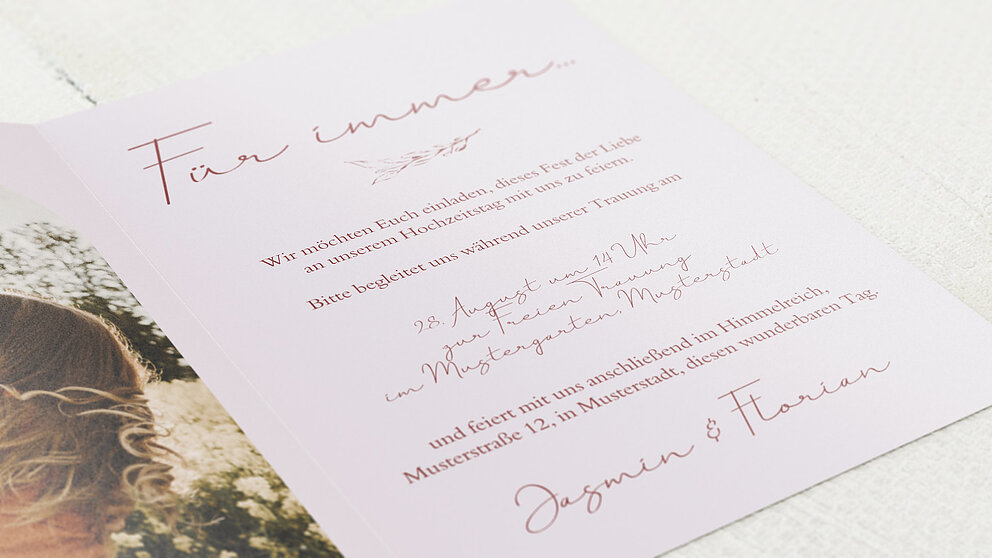 Für immer...
Wir möchten Euch einladen, dieses Fest der Liebe
an unserem Hochzeitstag mit uns zu feiern.
Bitte begleitet uns während unserer Trauung am
28. August um 14 Uhr
zur Freien Trauung
im Mustergarten, Musterstadt
und feiert mit uns anschließend im Himmelreich,
Musterstraße 12, in Musterstadt, diesen wunderbaren Tag.
Jasmin & Florian